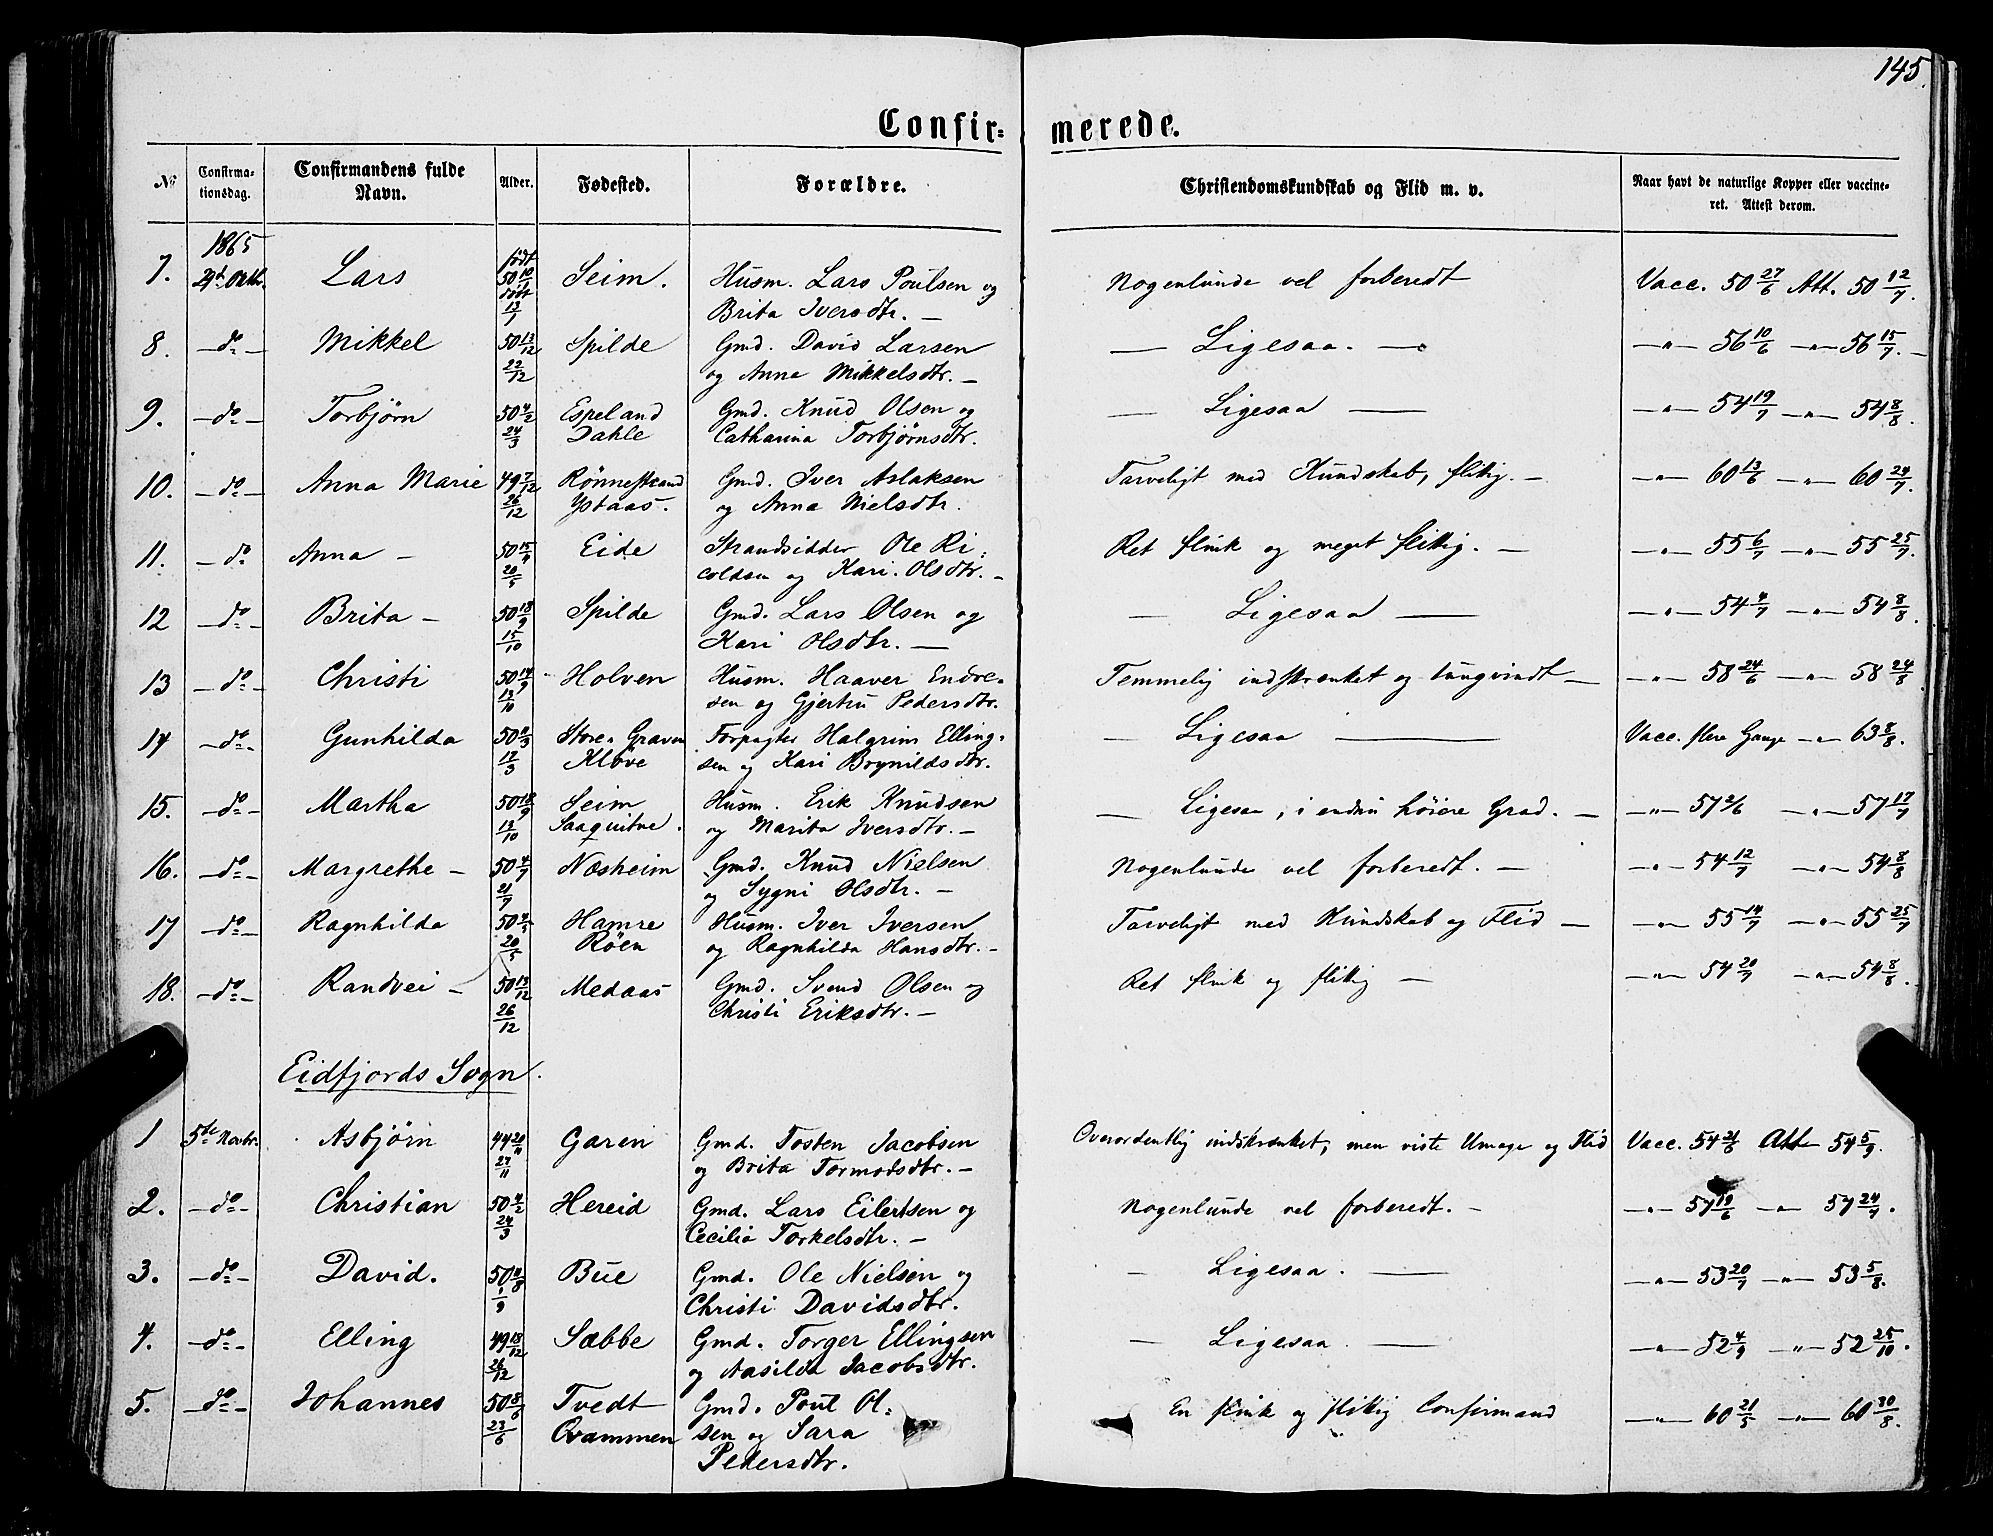 145.
Confir= merede.
No Confirma=tionsdag. Confirmandens fulde Navn. Alder. Fødested. Forældre. Christendomskundskab og Flid m. v. Naar havt de naturlige Kopper eller vaccine=ret. Attest derom.
1865 født
7. 29de Octbr. Lars 50 10/7 Seim. Husm. Lars Poulsen og Nogenlunde vel forberedt Vacc. 50 27/6 Att. 50 12/7.
døbt 13/7 Brita Iversdtr. —
8. — do — Mikkel 50 13/12 Spilde Gmd. David Larsen — Ligesaa. — —"— 56 10/6 —"— 56 15/7. —
22/12 og Anna Mikkelsdtr. —
9. — do — Torbjørn 50 4/2 Espeland Gmd. Knud Olsen og — Ligesaa — —"— 54 19/7 —"— 54 8/8.
24/3 Dahle Catharina Torbjørnsdtr.
10. — do — Anna Marie 49 7/12 Rönnestrand Gmd. Iver Aslaksen Tarveligt med Kundskab, flittig. — —"— 60 13/6 —"— 60 24/7.
26/12 Ystaas. og Anna Nielsdtr.
11. — do Anna — 50 15/4 Eide Strandsidder Ole Ri= Ret flink og meget flittig. — —"— 55 6/7 —"— 55 25/7.
20/5 coldsen og Kari Olsdtr. —
12 — do — Brita — 50 18/9 Spilde Gmd. Lars Olsen og — Ligesaa — —"— 54 4/7 —"— 54 8/8.
15/10 Kari Olsdtr. —
13 — do — Christi 50 14/9 Holven Husm. Haaver Endre= Temmelig indskrænket og tungvindt — —"— 58 24/6 —"— 58 24/8.
13/10 sen og Gjertru Pedersdtr.
14 — do — Gunhilda 50 8/3 Store-Graven Forpagter Halgrim Elling= — Ligesaa — Vacc. flere Gange —"— 63 8/8.
12/3 Kløve sen og Kari Brynildsdtr.
15. — do — Martha 50 18/9 Seim Husm. Erik Knudsen — Ligesaa, i endnu høiere Grad. — —"— 57 2/6 —"— 57 17/7
13/10 Saaquitne. og Marita Iversdtr. —
16. — do — Margrethe — 50 4/7 Næsheim Gmd. Knud Nielsen Nogenlunde vel forberedt. — —"— 54 12/7 —"— 54 8/8
21/7 og Sygni Olsdtr. —
17 — do — Ragnhilda 50 4/5 Hamre Husm. Iver Iversen Tarveligt med Kundskab og Flid — —"— 55 14/7 —"— 55 25/7
20/5 Röen og Ragnhilda Hansdtr. —
18. — do — Randvei — 50 13/12 Medaas Gmd. Svend Olsen og Ret flink og flittig — —"— 54 20/7 —"— 54 8/8.
26/12 Christi Eriksdtr. —
Eidfjords Sogn.
1 5te Novbr. Asbjørn 44 20/11 Garen Gmd. Tosten Jacobsen Overordentlig indskrænket, men viste Umage og Flid Vacc. 54 21/6 Att 54 5/9.
27/11 og Brita Tormodsdtr. —
2. — do — Christian 50 4/2 Hereid Gmd. Lars Eilertsen og Nogenlunde vel forberedt. — —"— 57 19/6 —"— 57 24/7.
24/3 Cecilia Torkelsdtr. —
3. — do — David. 50 4/8 Büe Gmd. Ole Nielsen og — Ligesaa. — —"— 53 20/7 —"— 53 5/8.
1/9 Christi Davidsdtr.
4. — do — Elling 49 18/12 Sæbbe Gmd. Torger Ellingsen — Ligesaa. — —"— 52 4/9 —"— 52 25/10.
26/12 og Aasilda Jacobsdtr.
5. — do — Johannes 50 8/6 Tvedt Gmd. Poul Ol= En flink og flittig Confirmand —"— 60 21/5 —"— 60 30/8.
23/6 Qvammen sen og Sara
Pedersdtr.